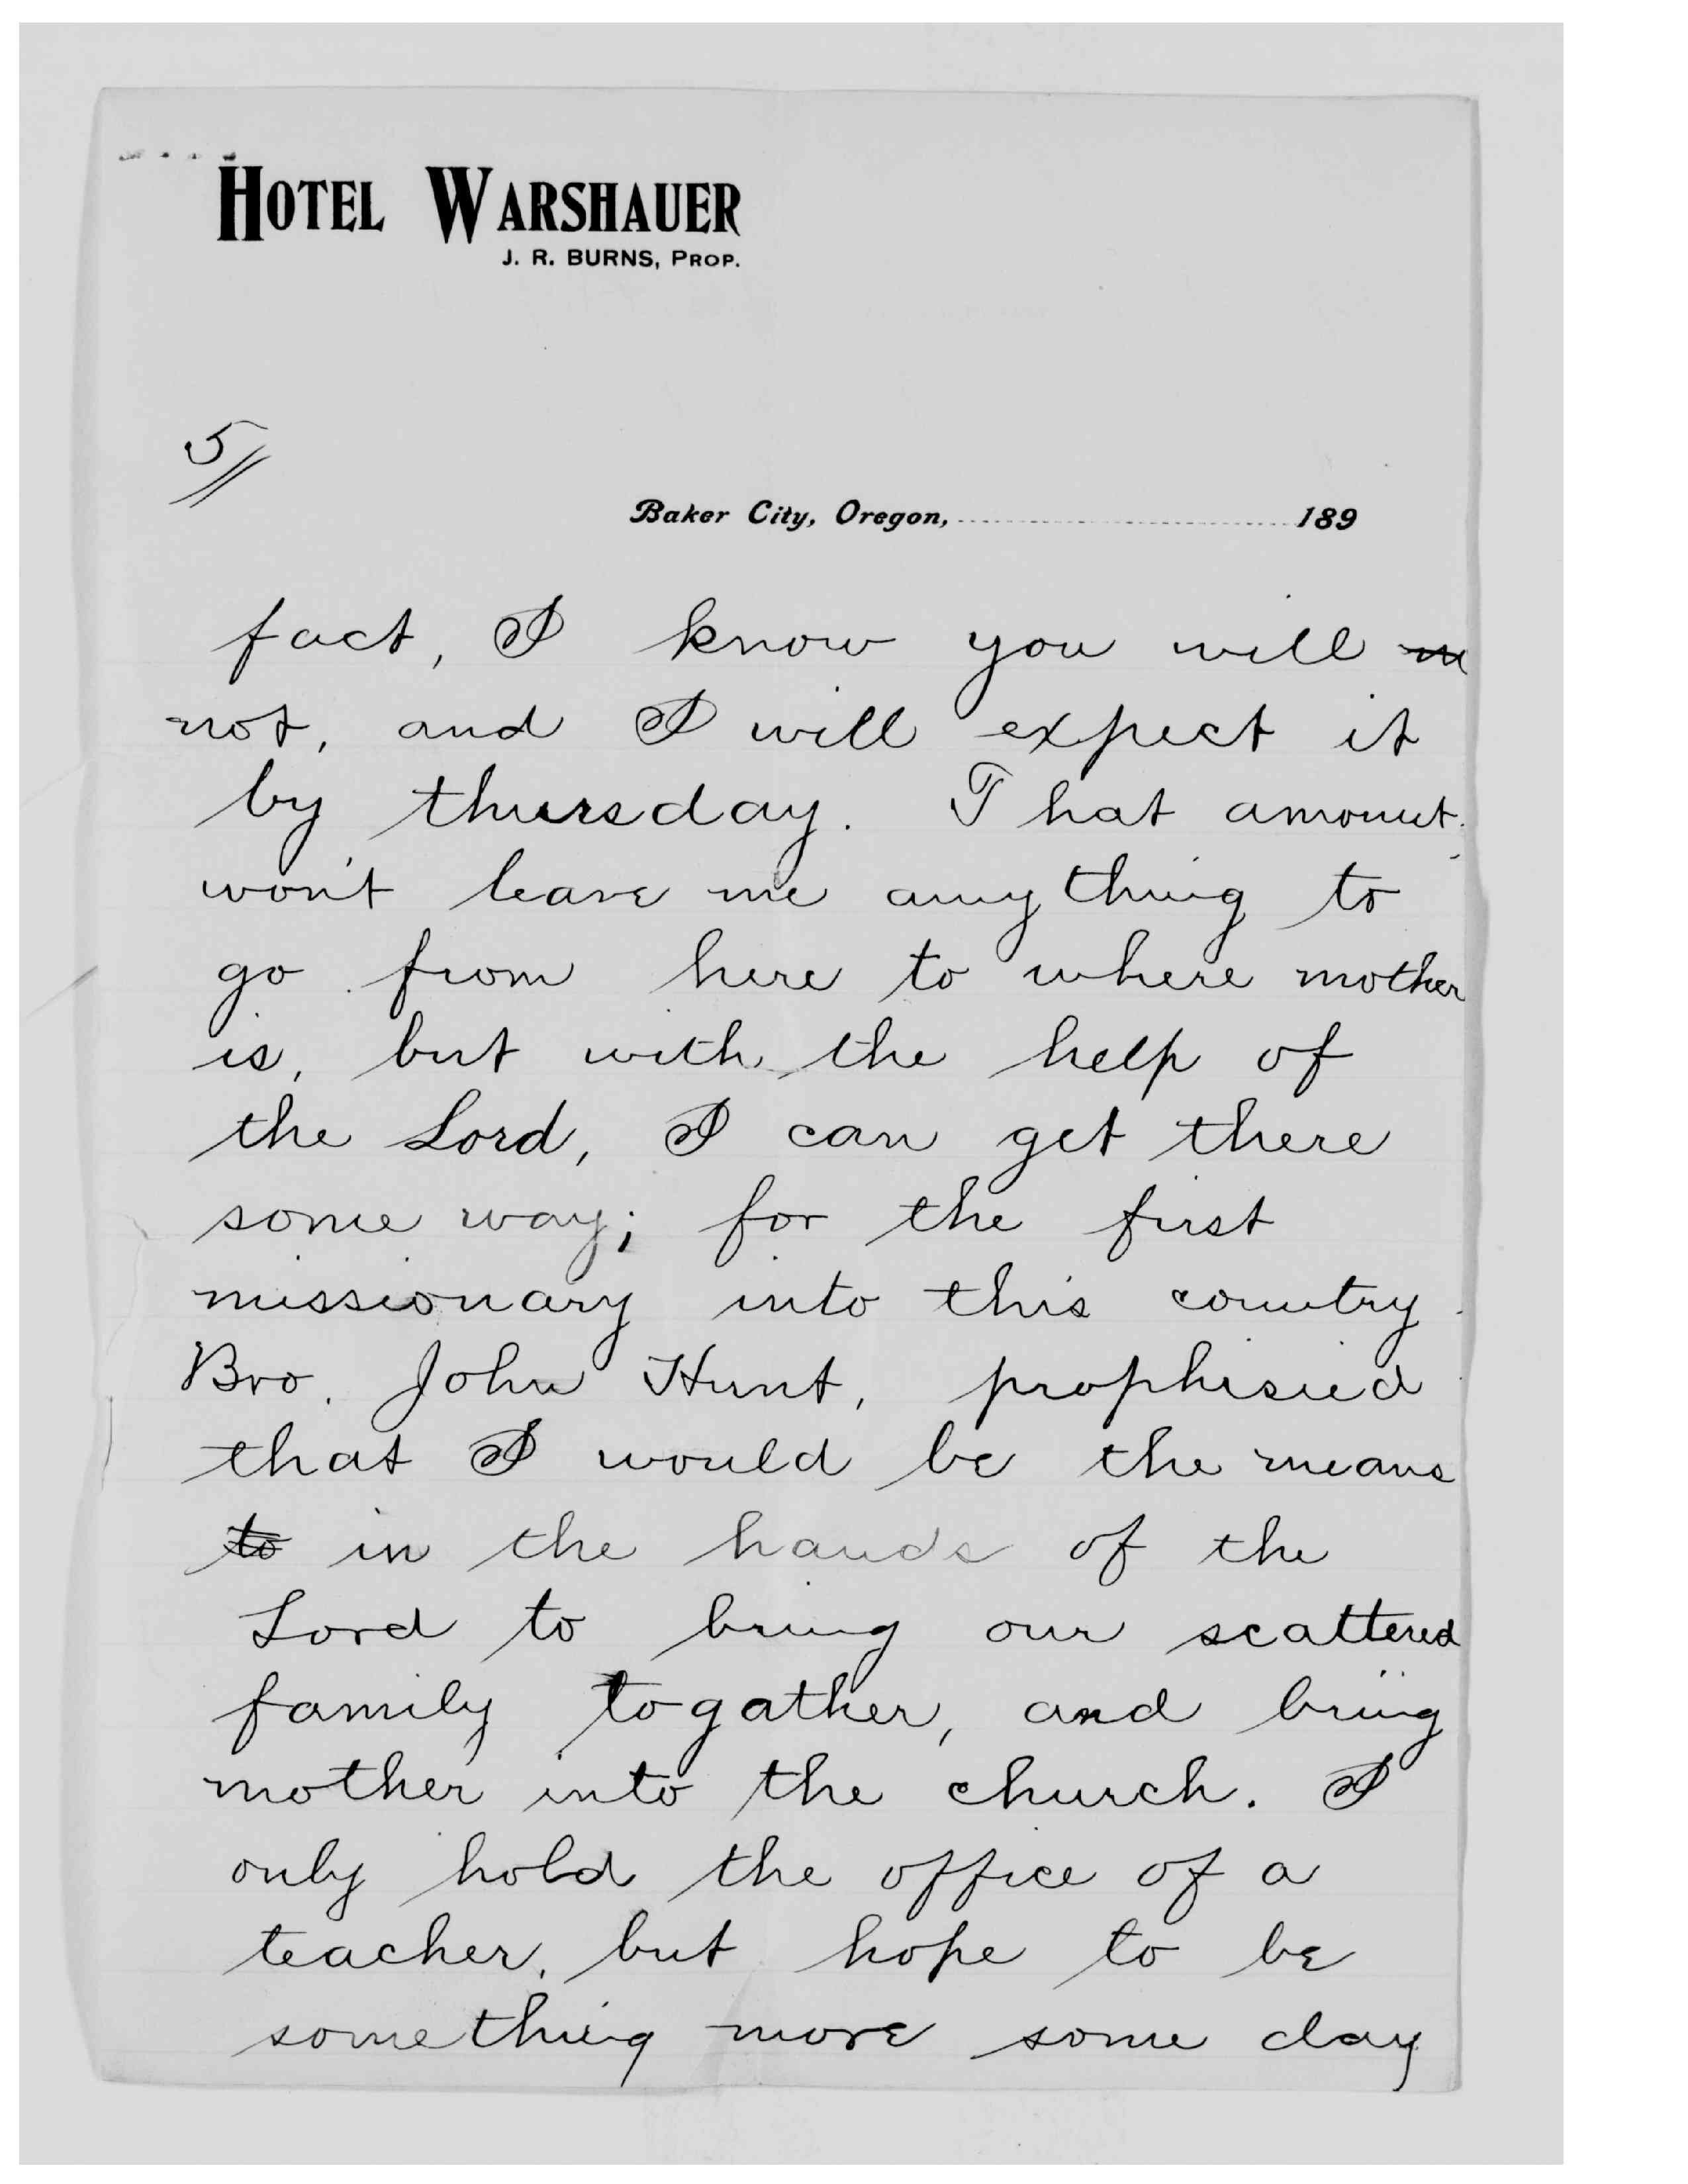 HOTEL WARSHAUER
J. R. BURNS, PROP.
5//
Baker City, Oregon, 189
fact, I know you will
not, and I will expect it
by thursday. That amount
won't leave me anything to
go from here to where mother
is, but with the help of
the Lord, I can get there
some way; for the first
missionary into this country
Bro. John Hunt, prophisied
that I would be the means
to in the hands of the
Lord to bring our scattered
family togather, and bring
mother into the church. I
only hold the office of a
teacher, but hope to be
something more some day